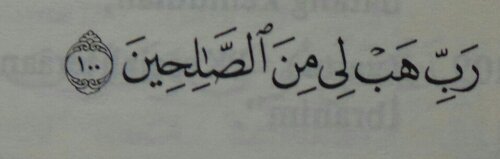 رَبِّ هَبْ لِى مِنَ ٱلصَّـٰلِحِينَ ١٠٠